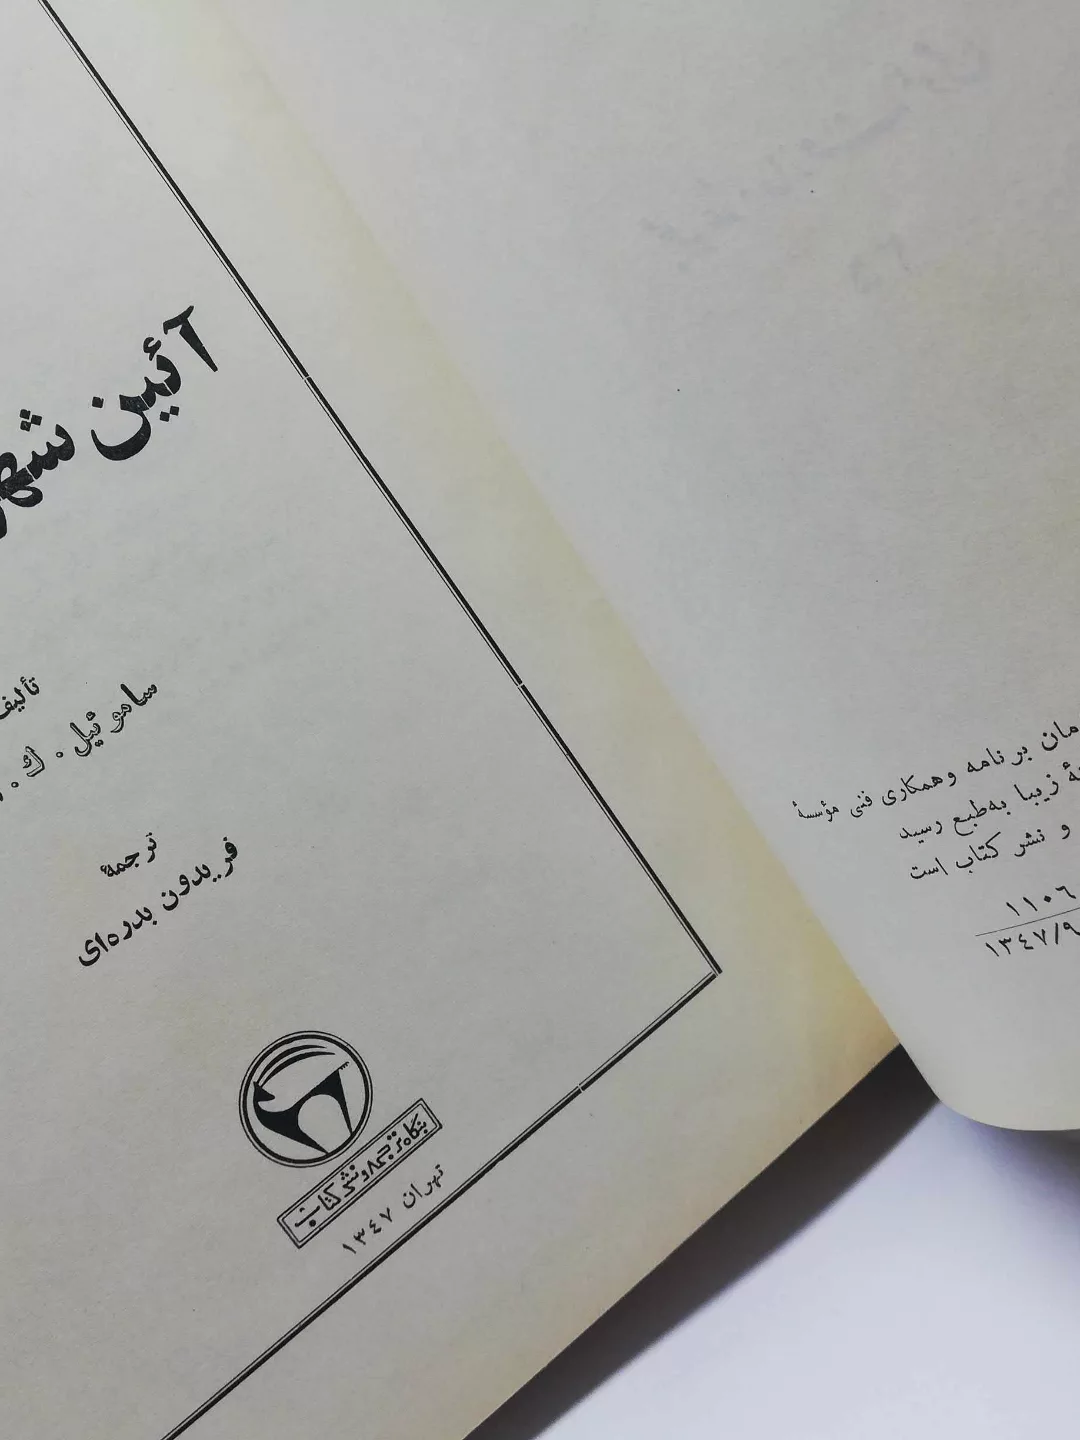 آئین شهر
تألیف
ساموئیل . ك .
ترجمهٔ
فریدون بدره‌ای
بنگاه ترجمه و نشر کتاب
تهران ۱۳۴۷
مان برنامه وهمکاری فنی مؤسسهٔ
زیبا به‌طبع رسید
و نشر کتاب است
۱۱۰۶
۱۳۴۷/۹